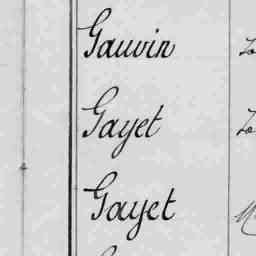 Gauvin
Gayet
Gayet